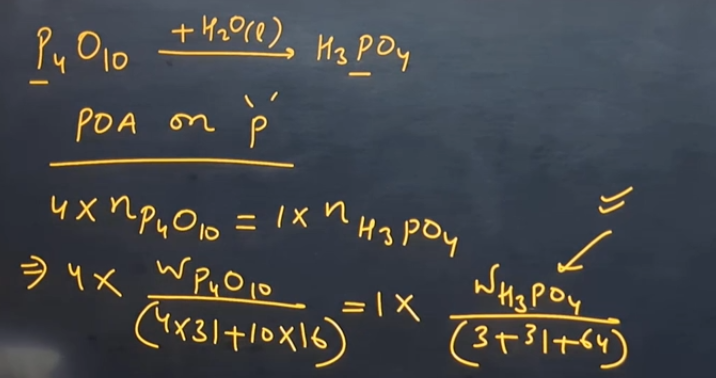 P₄O₁₀ +H₂O(l) → H₃PO₄
POA on 'P'
4 × nP₄O₁₀ = 1 × nH₃PO₄
⇒ 4 × WP₄O₁₀ / (4×31+10×16) = 1 × WH₃PO₄ / (3+31+64)